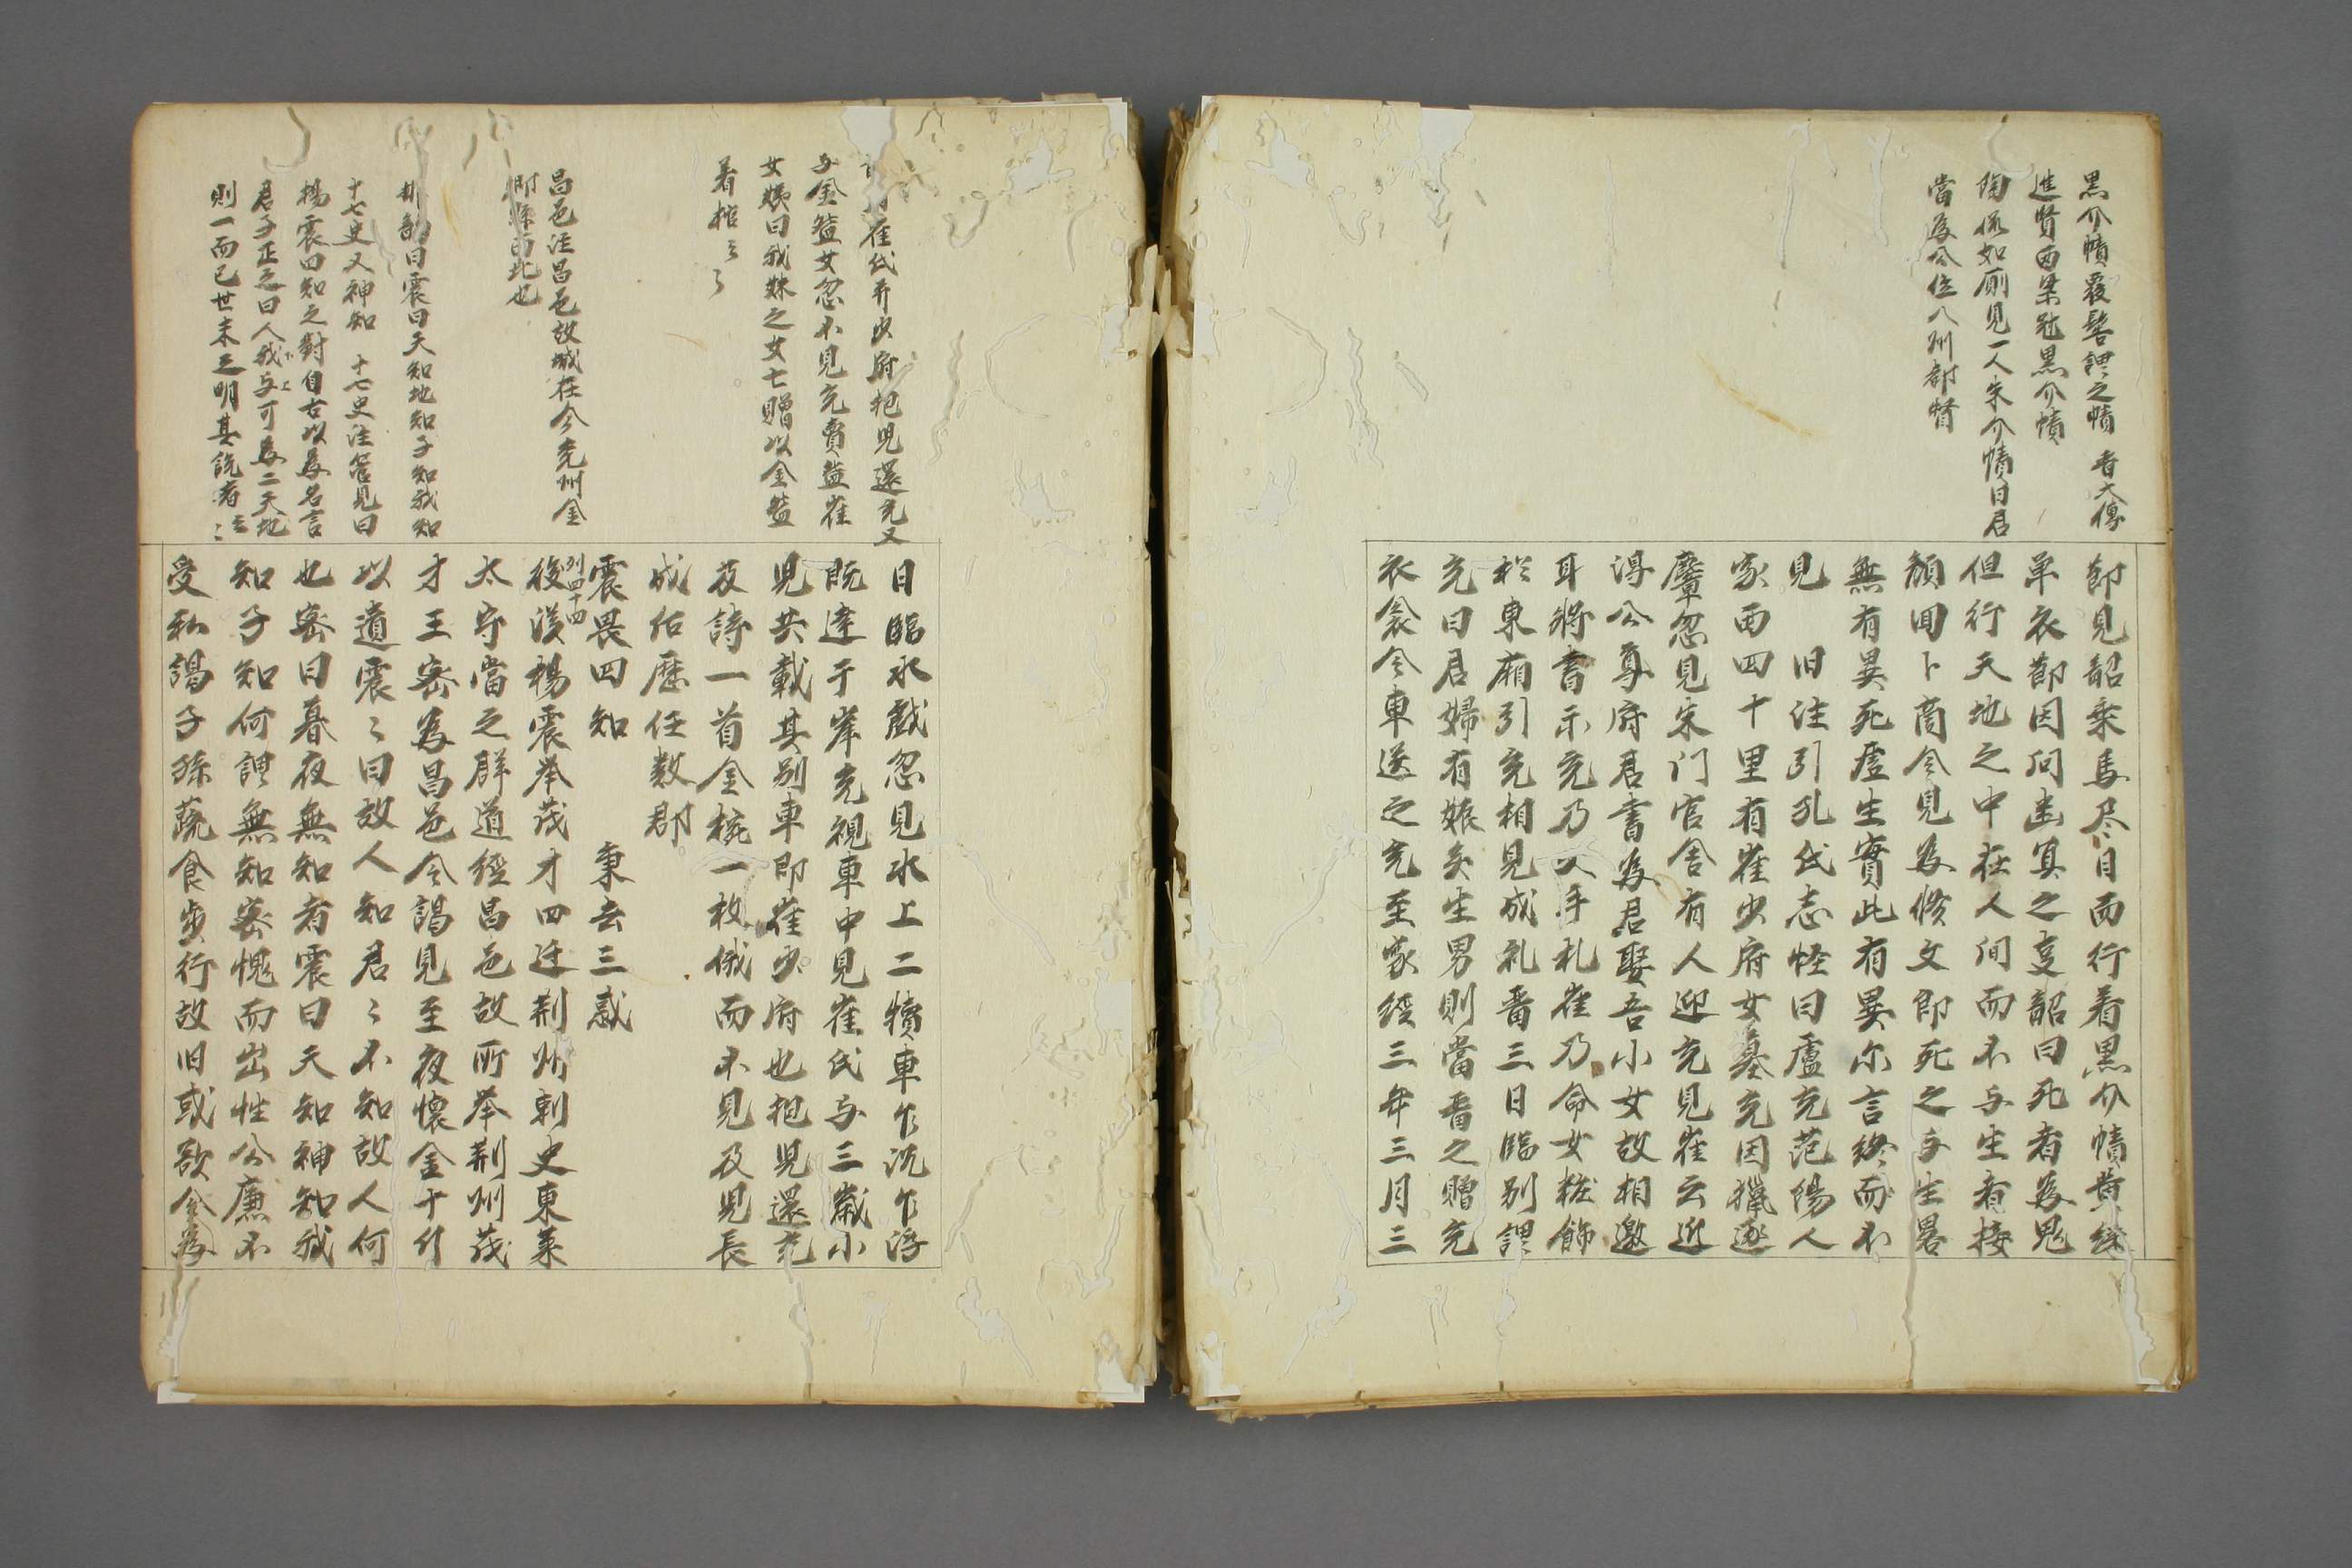 黒介幘覆髻謂之幘 晋大傅
進賢两梁冠黒介幘
陶侃如厠見一人朱介幘曰君
當為公位八州都督
節見韶乗馬尽日而行着黒介幘黄綀
単衣節因问幽冥之变韶曰死者為鬼
但行天地之中在人间而不与生者接
顔囬卜商今見為修文郎死之与生畧
無有異死虚生實此有異尓言終而不
見 旧注引孔氏志怪曰盧充范陽人
家西四十里有崔少府女墓充因獵逐
麞忽見朱门官舎有人迎充見崔云近
淂公尊府君書為君娶吾小女故相邀
耳將書示充乃父手札崔乃命女粧飾
於東廂引充相見成礼畱三日臨別謂
充曰君婦有娠矣生男則當畱之贈充
衣衾令車送之充至家経三年三月三
崔氏并少府抱児還充又
与金鋺女忽不見充賣鋺崔
女姨曰我妹之女亡贈以金鋺
着棺云々
昌邑注昌邑故城在今兖州金
郷縣西北也
排韵曰震曰天知地知子知我知
十七史又神知 十七史注管見曰
楊震四知之對自古以為名言
君子正之曰人我与可為二天地
則一而已世未之明其説者云々
日臨水戯忽見水上二犢車乍沈乍浮
既達于岸充視車中見崔氏与三歳小
児共載其別車即崔少府也抱児還充
及詩一首金椀一枚俄而不見及児長
成后歴任数郡
震畏四知 秉去三惑
列四十四
後漢楊震举茂才四迁荆州刺史東萊
太守當之群道経昌邑故所举荆州茂
才王密為昌邑令謁見至夜懐金十斤
以遺震々曰故人知君々不知故人何
也密曰暮夜無知者震曰天知神知我
知子知何謂無知密愧而出性公廉不
受私謁子孫蔬食歩行故旧或欲令為